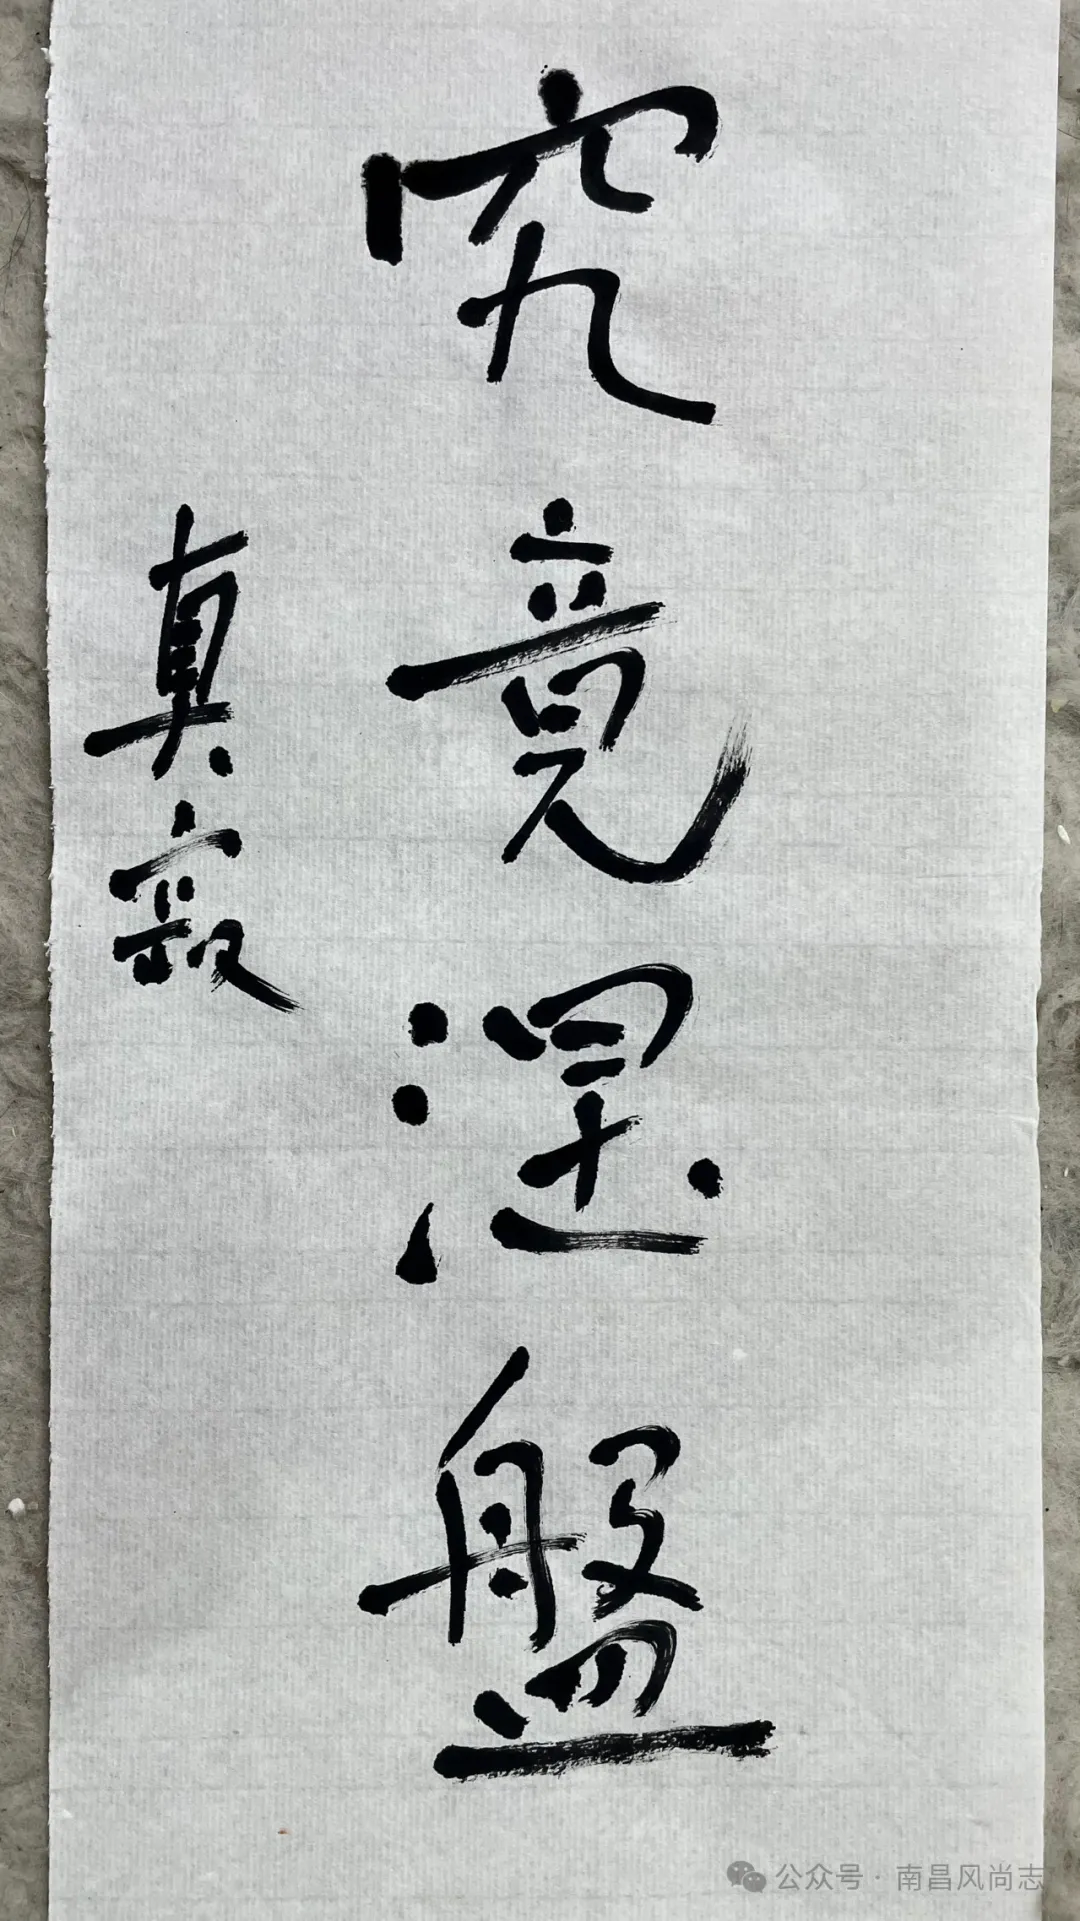 究竟涅盤
真寂
公众号 · 南昌风尚志